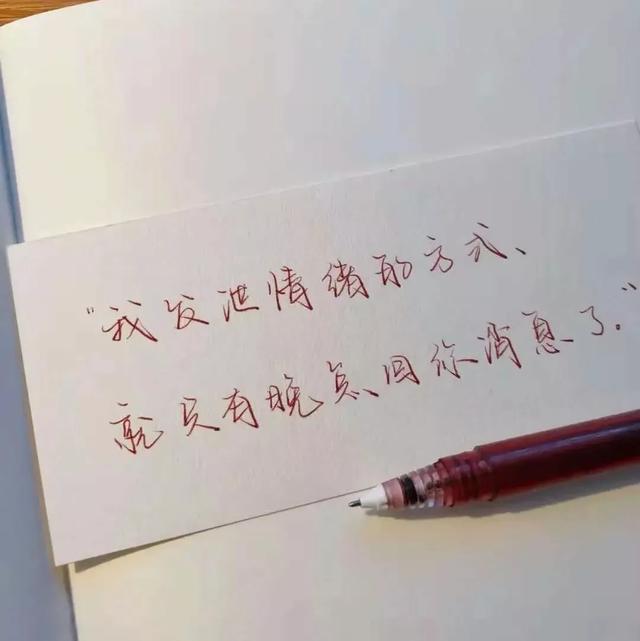 "我发泄情绪的方式、
就只有晚点回你消息了."